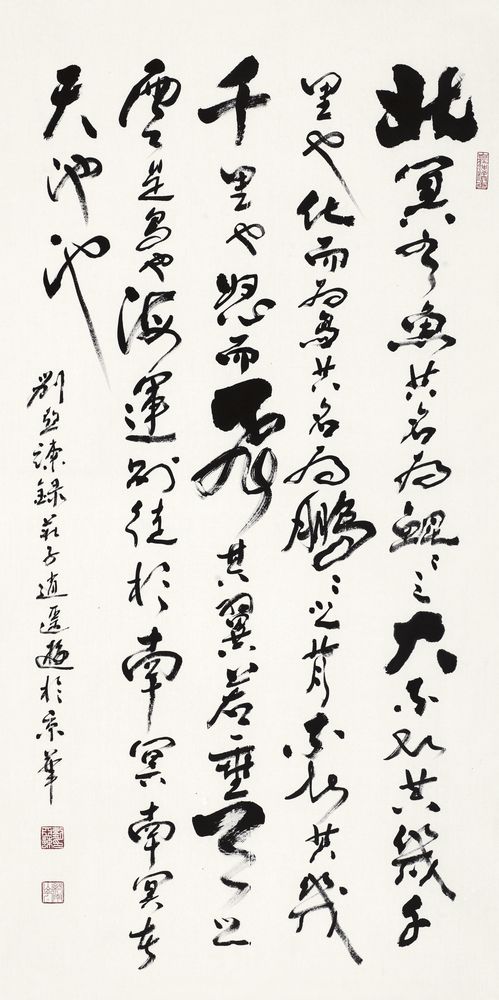 北冥有魚其名為鯤〻之大不知其幾千
里也化而為鳥其名為鵬〻之背不知其幾
千里也怒而飛其翼若垂天之
雲是鳥也海運則徙於南冥南冥者
天池也
劉亞諫錄莊子逍遙遊於京華